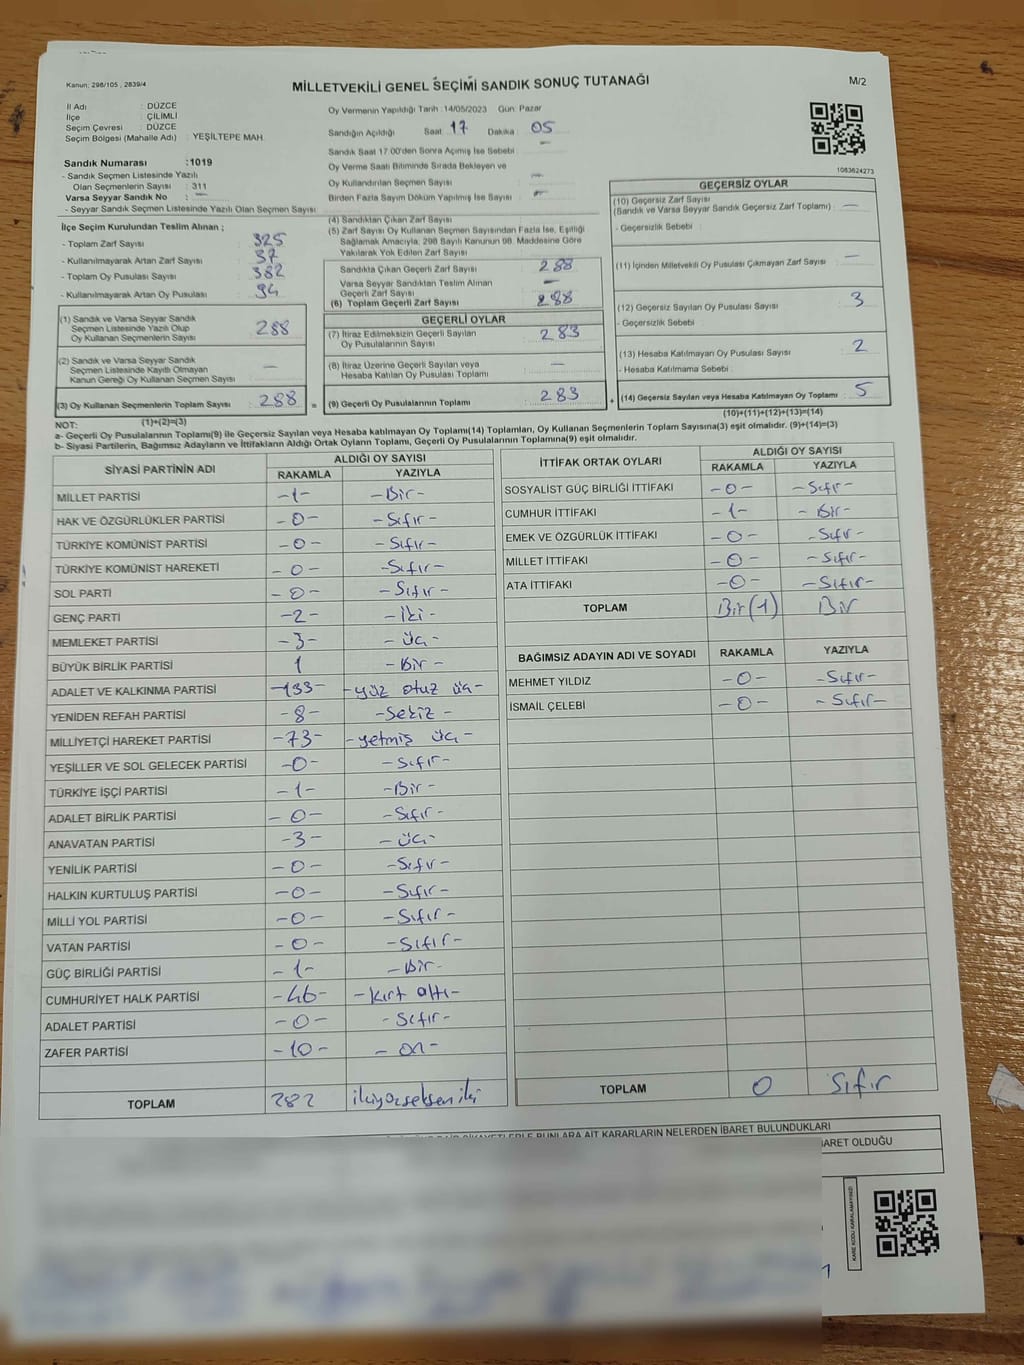 Kanun: 298/105 , 2839/4
MİLLETVEKİLİ GENEL SEÇİMİ SANDIK SONUÇ TUTANAĞI
M/2
İl Adı : DÜZCE
İlçe : ÇİLİMLİ
Seçim Çevresi : DÜZCE
Seçim Bölgesi (Mahalle Adı) : YEŞİLTEPE MAH.
Sandık Numarası : 1019
- Sandık Seçmen Listesinde Yazılı
Olan Seçmenlerin Sayısı : 311
Varsa Seyyar Sandık No : —
- Seyyar Sandık Seçmen Listesinde Yazılı Olan Seçmen Sayısı :
Oy Vermenin Yapıldığı Tarih : 14/05/2023 Gün: Pazar
Sandığın Açıldığı Saat : 17 Dakika : 05
Sandık Saat 17:00'den Sonra Açımış İse Sebebi : —
Oy Verme Saati Bitiminde Sırada Bekleyen ve
Oy Kullandırılan Seçmen Sayısı : —
Birden Fazla Sayım Döküm Yapılmış İse Sayısı : —
1083624273
İlçe Seçim Kurulundan Teslim Alınan ;
- Toplam Zarf Sayısı : 325
- Kullanılmayarak Artan Zarf Sayısı : 37
- Toplam Oy Pusulası Sayısı : 382
- Kullanılmayarak Artan Oy Pusulası : 94
(1) Sandık ve Varsa Seyyar Sandık
Seçmen Listesinde Yazılı Olup
Oy Kullanan Seçmenlerin Sayısı : 288
(2) Sandık ve Varsa Seyyar Sandık
Seçmen Listesinde Kayıtlı Olmayan
Kanun Gereği Oy Kullanan Seçmen Sayısı : —
(3) Oy Kullanan Seçmenlerin Toplam Sayısı : 288 =
(1)+(2)=(3)
(4) Sandıktan Çıkan Zarf Sayısı :
(5) Zarf Sayısı Oy Kullanan Seçmen Sayısından Fazla İse, Eşitliği
Sağlamak Amacıyla, 298 Sayılı Kanunun 98. Maddesine Göre
Yakılarak Yok Edilen Zarf Sayısı :
Sandıkta Çıkan Geçerli Zarf Sayısı : 288
Varsa Seyyar Sandıktan Teslim Alınan
Geçerli Zarf Sayısı : —
(6) Toplam Geçerli Zarf Sayısı : 288
GEÇERLİ OYLAR
(7) İtiraz Edilmeksizin Geçerli Sayılan
Oy Pusulalarının Sayısı : 283
(8) İtiraz Üzerine Geçerli Sayılan veya
Hesaba Katılan Oy Pusulası Toplamı : —
(9) Geçerli Oy Pusulalarının Toplamı : 283 +
GEÇERSİZ OYLAR
(10) Geçersiz Zarf Sayısı
(Sandık ve Varsa Seyyar Sandık Geçersiz Zarf Toplamı) : —
- Geçersizlik Sebebi :
(11) İçinden Milletvekili Oy Pusulası Çıkmayan Zarf Sayısı : —
(12) Geçersiz Sayılan Oy Pusulası Sayısı : 3
- Geçersizlik Sebebi :
(13) Hesaba Katılmayan Oy Pusulası Sayısı : 2
- Hesaba Katılmama Sebebi :
(14) Geçersiz Sayılan veya Hesaba Katılmayan Oy Toplamı : 5
(10)+(11)+(12)+(13)=(14)
NOT:
a- Geçerli Oy Pusulalarının Toplamı(9) ile Geçersiz Sayılan veya Hesaba katılmayan Oy Toplamı(14) Toplamları, Oy Kullanan Seçmenlerin Toplam Sayısına(3) eşit olmalıdır. (9)+(14)=(3)
b- Siyasi Partilerin, Bağımsız Adayların ve İttifakların Aldığı Ortak Oyların Toplamı, Geçerli Oy Pusulalarının Toplamına(9) eşit olmalıdır.
SİYASİ PARTİNİN ADI ALDIĞI OY SAYISI
RAKAMLA YAZIYLA
MİLLET PARTİSİ -1- -Bir-
HAK VE ÖZGÜRLÜKLER PARTİSİ -0- -Sıfır-
TÜRKİYE KOMÜNİST PARTİSİ -0- -Sıfır-
TÜRKİYE KOMÜNİST HAREKETİ -0- -Sıfır-
SOL PARTİ -0- -Sıfır-
GENÇ PARTİ -2- -İki-
MEMLEKET PARTİSİ -3- -üç-
BÜYÜK BİRLİK PARTİSİ 1 -Bir-
ADALET VE KALKINMA PARTİSİ -133- -yüz otuz üç-
YENİDEN REFAH PARTİSİ -8- -Sekiz-
MİLLİYETÇİ HAREKET PARTİSİ -73- -yetmiş üç-
YEŞİLLER VE SOL GELECEK PARTİSİ -0- -Sıfır-
TÜRKİYE İŞÇİ PARTİSİ -1- -Bir-
ADALET BİRLİK PARTİSİ -0- -Sıfır-
ANAVATAN PARTİSİ -3- -üç-
YENİLİK PARTİSİ -0- -Sıfır-
HALKIN KURTULUŞ PARTİSİ -0- -Sıfır-
MİLLİ YOL PARTİSİ -0- -Sıfır-
VATAN PARTİSİ -0- -Sıfır-
GÜÇ BİRLİĞİ PARTİSİ -1- -Bir-
CUMHURİYET HALK PARTİSİ -46- -kırk altı-
ADALET PARTİSİ -0- -Sıfır-
ZAFER PARTİSİ -10- -on-
TOPLAM 282 ikiyüzseksen iki
İTTİFAK ORTAK OYLARI ALDIĞI OY SAYISI
RAKAMLA YAZIYLA
SOSYALİST GÜÇ BİRLİĞİ İTTİFAKI -0- -Sıfır-
CUMHUR İTTİFAKI -1- -Bir-
EMEK VE ÖZGÜRLÜK İTTİFAKI -0- -Sıfır-
MİLLET İTTİFAKI -0- -Sıfır-
ATA İTTİFAKI -0- -Sıfır-
TOPLAM Bir(1) Bir
BAĞIMSIZ ADAYIN ADI VE SOYADI RAKAMLA YAZIYLA
MEHMET YILDIZ -0- -Sıfır-
İSMAİL ÇELEBİ -0- -Sıfır-
TOPLAM 0 Sıfır
BUNLARA AİT KARARLARIN NELERDEN İBARET BULUNDUKLARI
İBARET OLDUĞU
KARE KODU KARALAMAYINIZ!